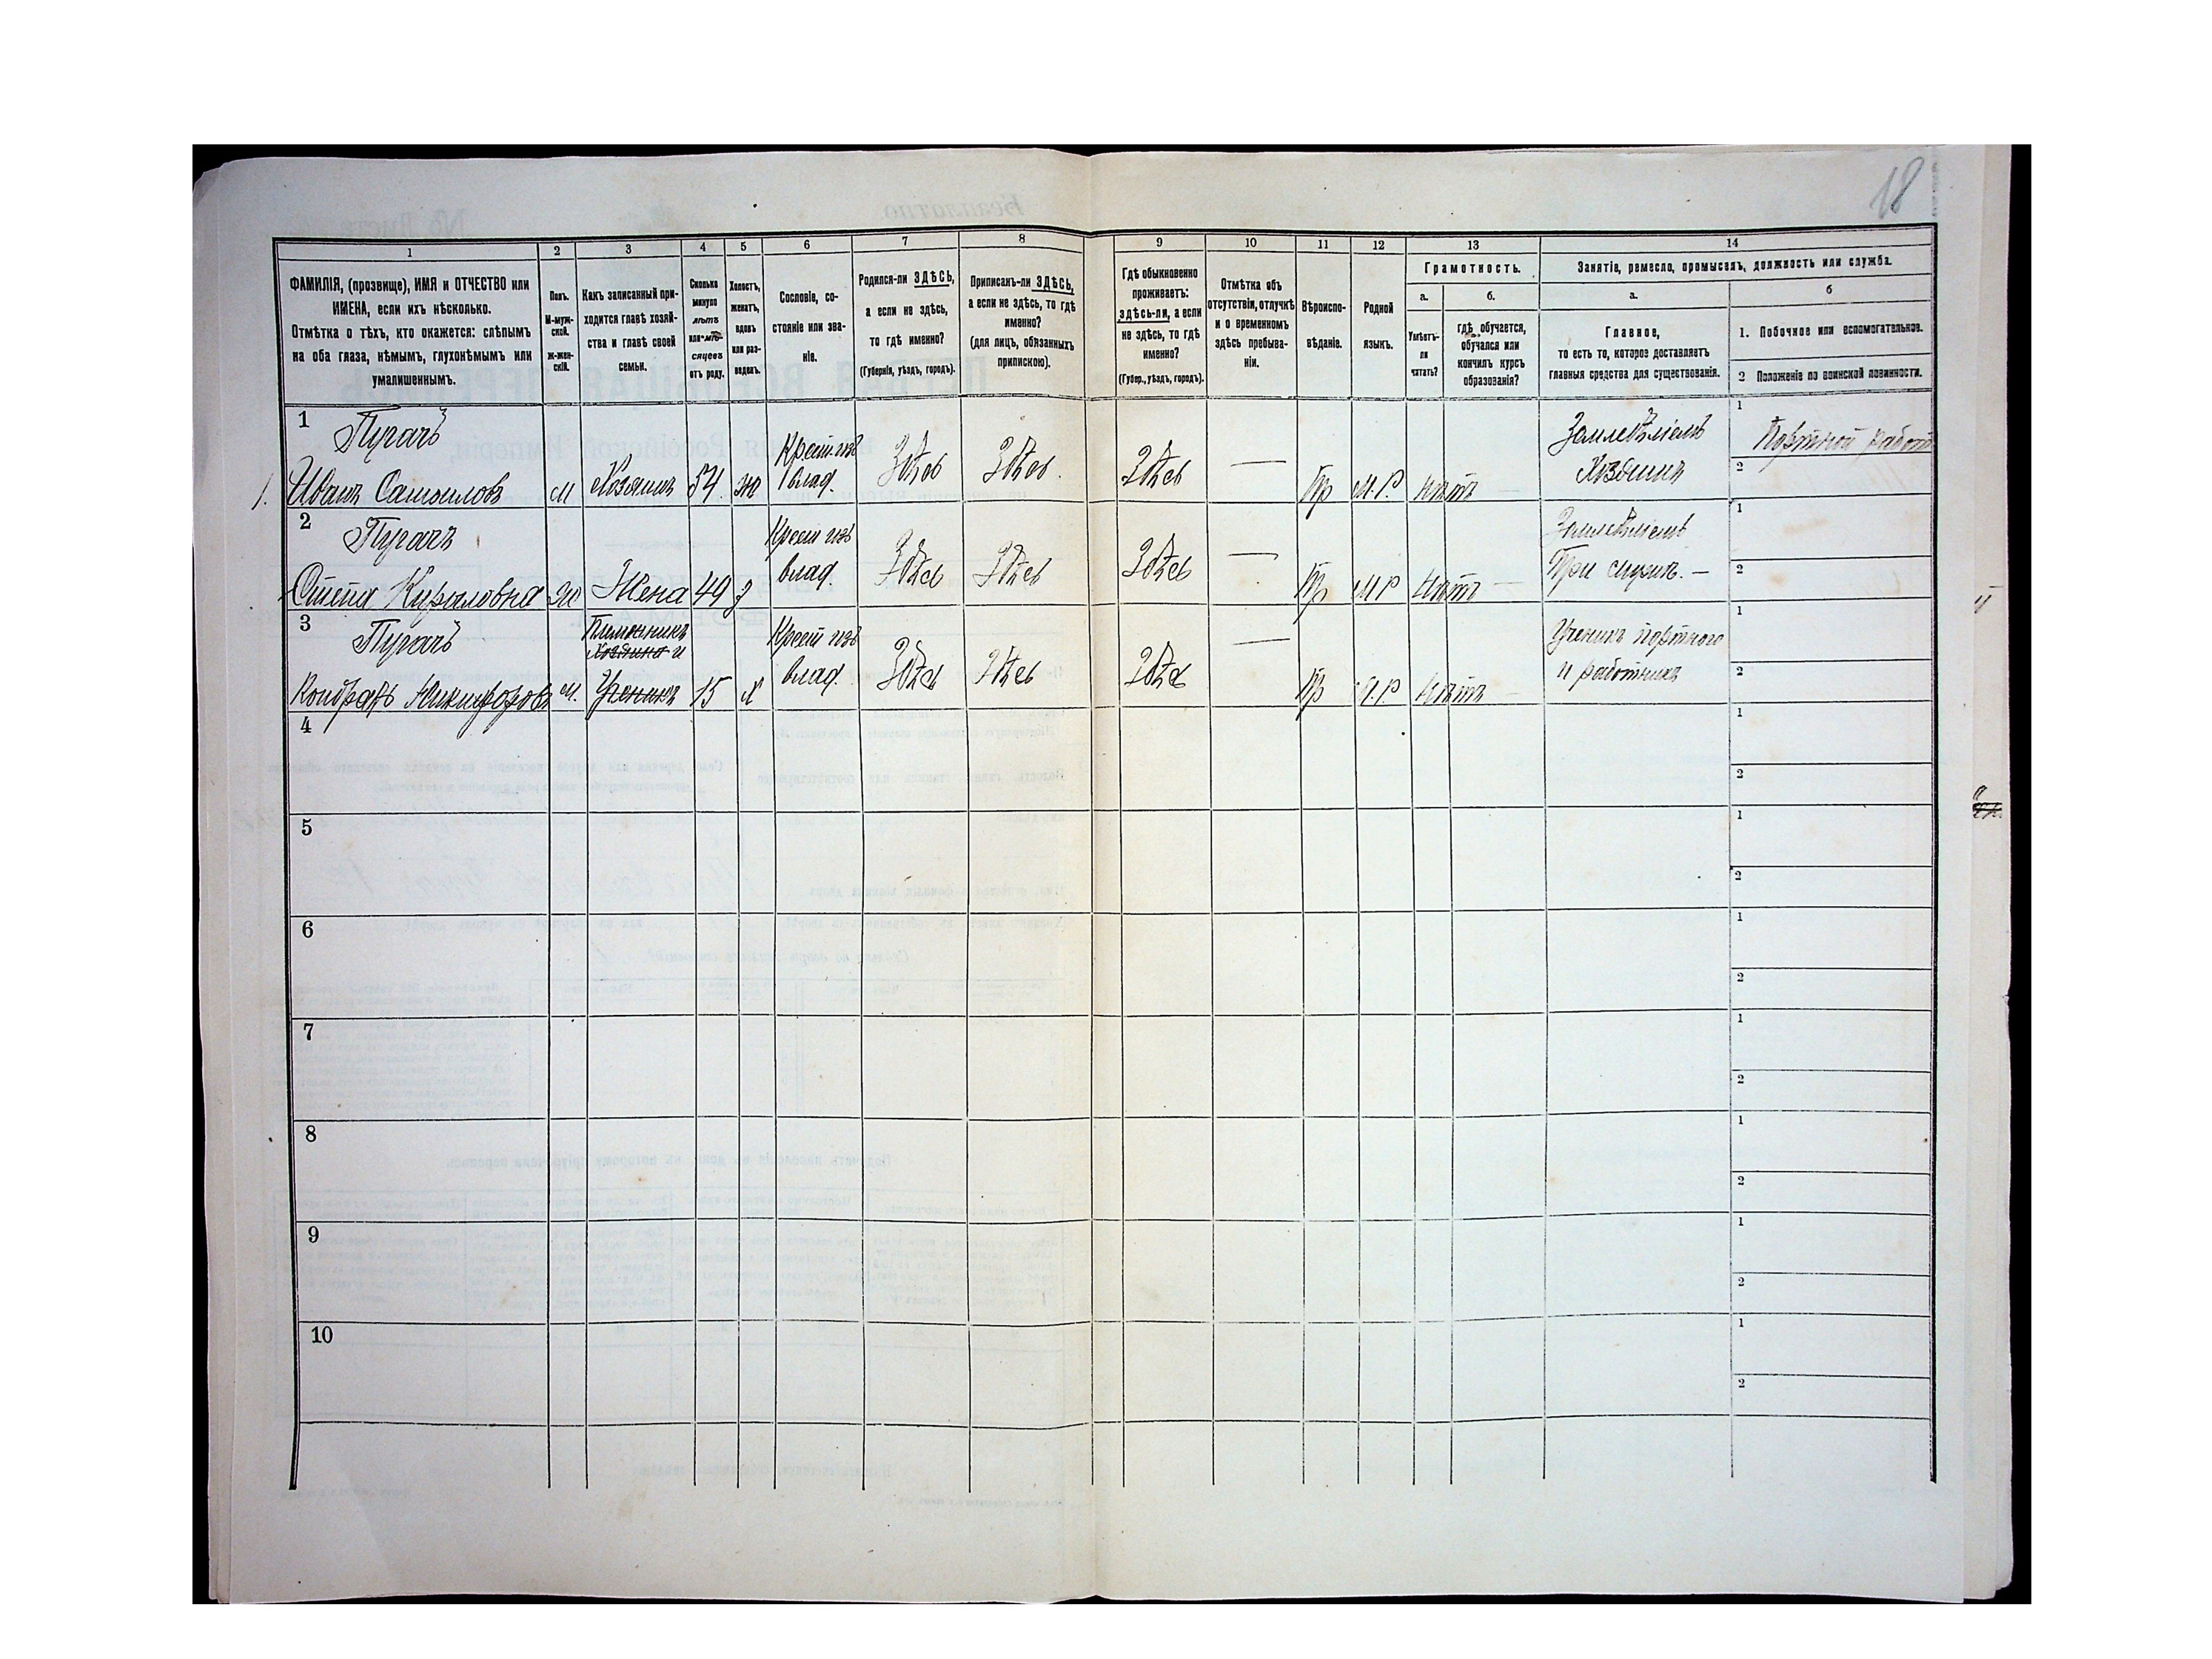 18
1
2
3
4
5
6
7
8
9
10
11
12
13
14
ФАМИЛІЯ, (прозвище), ИМЯ и ОТЧЕСТВО или
ИМЕНА, если ихъ нѣсколько.
Отмѣтка о тѣхъ, кто окажется: слѣпымъ
на оба глаза, нѣмымъ, глухонѣмымъ или
умалишеннымъ.
Полъ.
М-муж-
ской.
ж-жен-
скій.
Какъ записанный при-
ходится главѣ хозяй-
ства и главѣ своей
семьи.
Сколько
минуло
лѣтъ
или мѣ-
сяцевъ
отъ роду.
Холостъ,
женатъ,
вдовъ
или раз-
веденъ.
Сословіе, со-
стояніе или зва-
ніе.
Родился-ли ЗДѢСЬ,
а если не здѣсь,
то гдѣ именно?
(Губернія, уѣздъ, городъ).
Приписанъ-ли ЗДѢСЬ,
а если не здѣсь, то гдѣ
именно?
(для лицъ, обязанныхъ
припискою).
Гдѣ обыкновенно
проживаетъ:
здѣсь-ли, а если
не здѣсь, то гдѣ
именно?
(Губер., уѣздъ, городъ).
Отмѣтка объ
отсутствіи, отлучкѣ
и о временномъ
здѣсь пребыва-
ніи.
Вѣроиспо-
вѣданіе.
Родной
языкъ.
Грамотность.
а.
б.
Умѣетъ-
ли
читать?
гдѣ обучается,
обучался или
кончилъ курсъ
образованія?
Занятіе, ремесло, промыселъ, должность или служба.
а.
б
Главное,
то есть то, которое доставляетъ
главныя средства для существованія.
1. Побочное или вспомогательное.
2 Положеніе по воинской повинности.
1 Пугачъ
1. Иванъ Самоиловъ
м
Хозяинъ
54
ж
Крест. изъ
влад.
Здѣсь
Здѣсь.
Здѣсь
—
Пр
М.Р.
нѣтъ —
Землевѣліемъ
Хозяинъ
1 Портной работ
2
2 Пугачъ
Кириловна
ж
Жена
49
з
Крест изъ
влад.
Здѣсь
Здѣсь
Здѣсь
—
Пр
М Р
нѣтъ —
При —
1
2
3 Пугачъ
Кондратъ Никифоровъ
м.
Племянникъ
Хозяина и
Ученикъ
15
х
Крест изъ
влад.
Здѣсь
Здѣсь
Здѣсь
—
Пр
М.Р.
нѣтъ —
Ученикъ портного
и работникъ
1
2
4
1
2
5
1
2
6
1
2
7
1
2
8
1
2
9
1
2
10
1
2